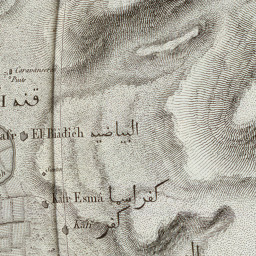 Caravanserai
Puits
قنه
El-Biâdieh البياضيه
Kafr Esmâ كفر اسما
Kafr كفر